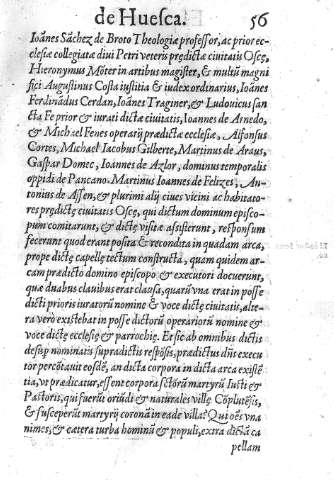 de Huesca. 56
Ioãnes Sãchez de Broto Theologiæ professor, ac prior ec-
clesiæ collegiatæ diui Petri veteris prędictæ ciuitatis Oscę,
Hieronymus Móter in artibus magister, & multũ magni
fici Augustinus Costa iustitia & iudex ordinarius, Ioãnes
Ferdinãdus Cerdan, Ioãnes Traginer, & Ludouicus san
cta Fe prior & iurati dictæ ciuitatis, Ioannes de Arnedo,
& Michael Fenes operarij prædictæ ecclesiæ, Alfonsus
Cortes, Michael Iacobus Gilberte, Martinus de Araus,
Gaspar Domec, Ioannes de Azlor, dominus temporalis
oppidi de Pancano. Martinus Ioannes de Felizes, An-
tonius de Assen, & plurimi alij ciues vicini ac habitato-
res prędictę ciuitatis Oscę, qui dictum dominum episco-
pum comitarunt, & dictę visitæ astiterunt, responsum
fecerunt quod erant posita & recondita in quadam arca,
prope dictę capellę tectum constructa, quam quidem ar-
cam prædicto domino episcopo & executori docuerunt,
quæ duabus clauibus erat clausa, quarũ vna erat in posse
dicti prioris iuratorũ nomine & voce dictę ciuitatis, alte-
ra verò existebat in posse dictorũ operariorũ nomine &
voce dictę ecclesię & parrochię. Et sic ab omnibus dictis
desup nominatis supradictis respõsis, prædictus dñs execu
tor percõtauit eosdẽ, an dicta corpora in dicta arca existẽ
tia, vt prædicatur, essent corpora sctõrũ martyrũ Iusti &
Pastoris, qui fuerũt oriũdi & naturales villę Cõplutẽsis,
& susceperũt martyrij coronã in eadẽ villa? Qui oẽs vna
nimes, & cætera turba hominũ & populi, extra dictã ca
pellam